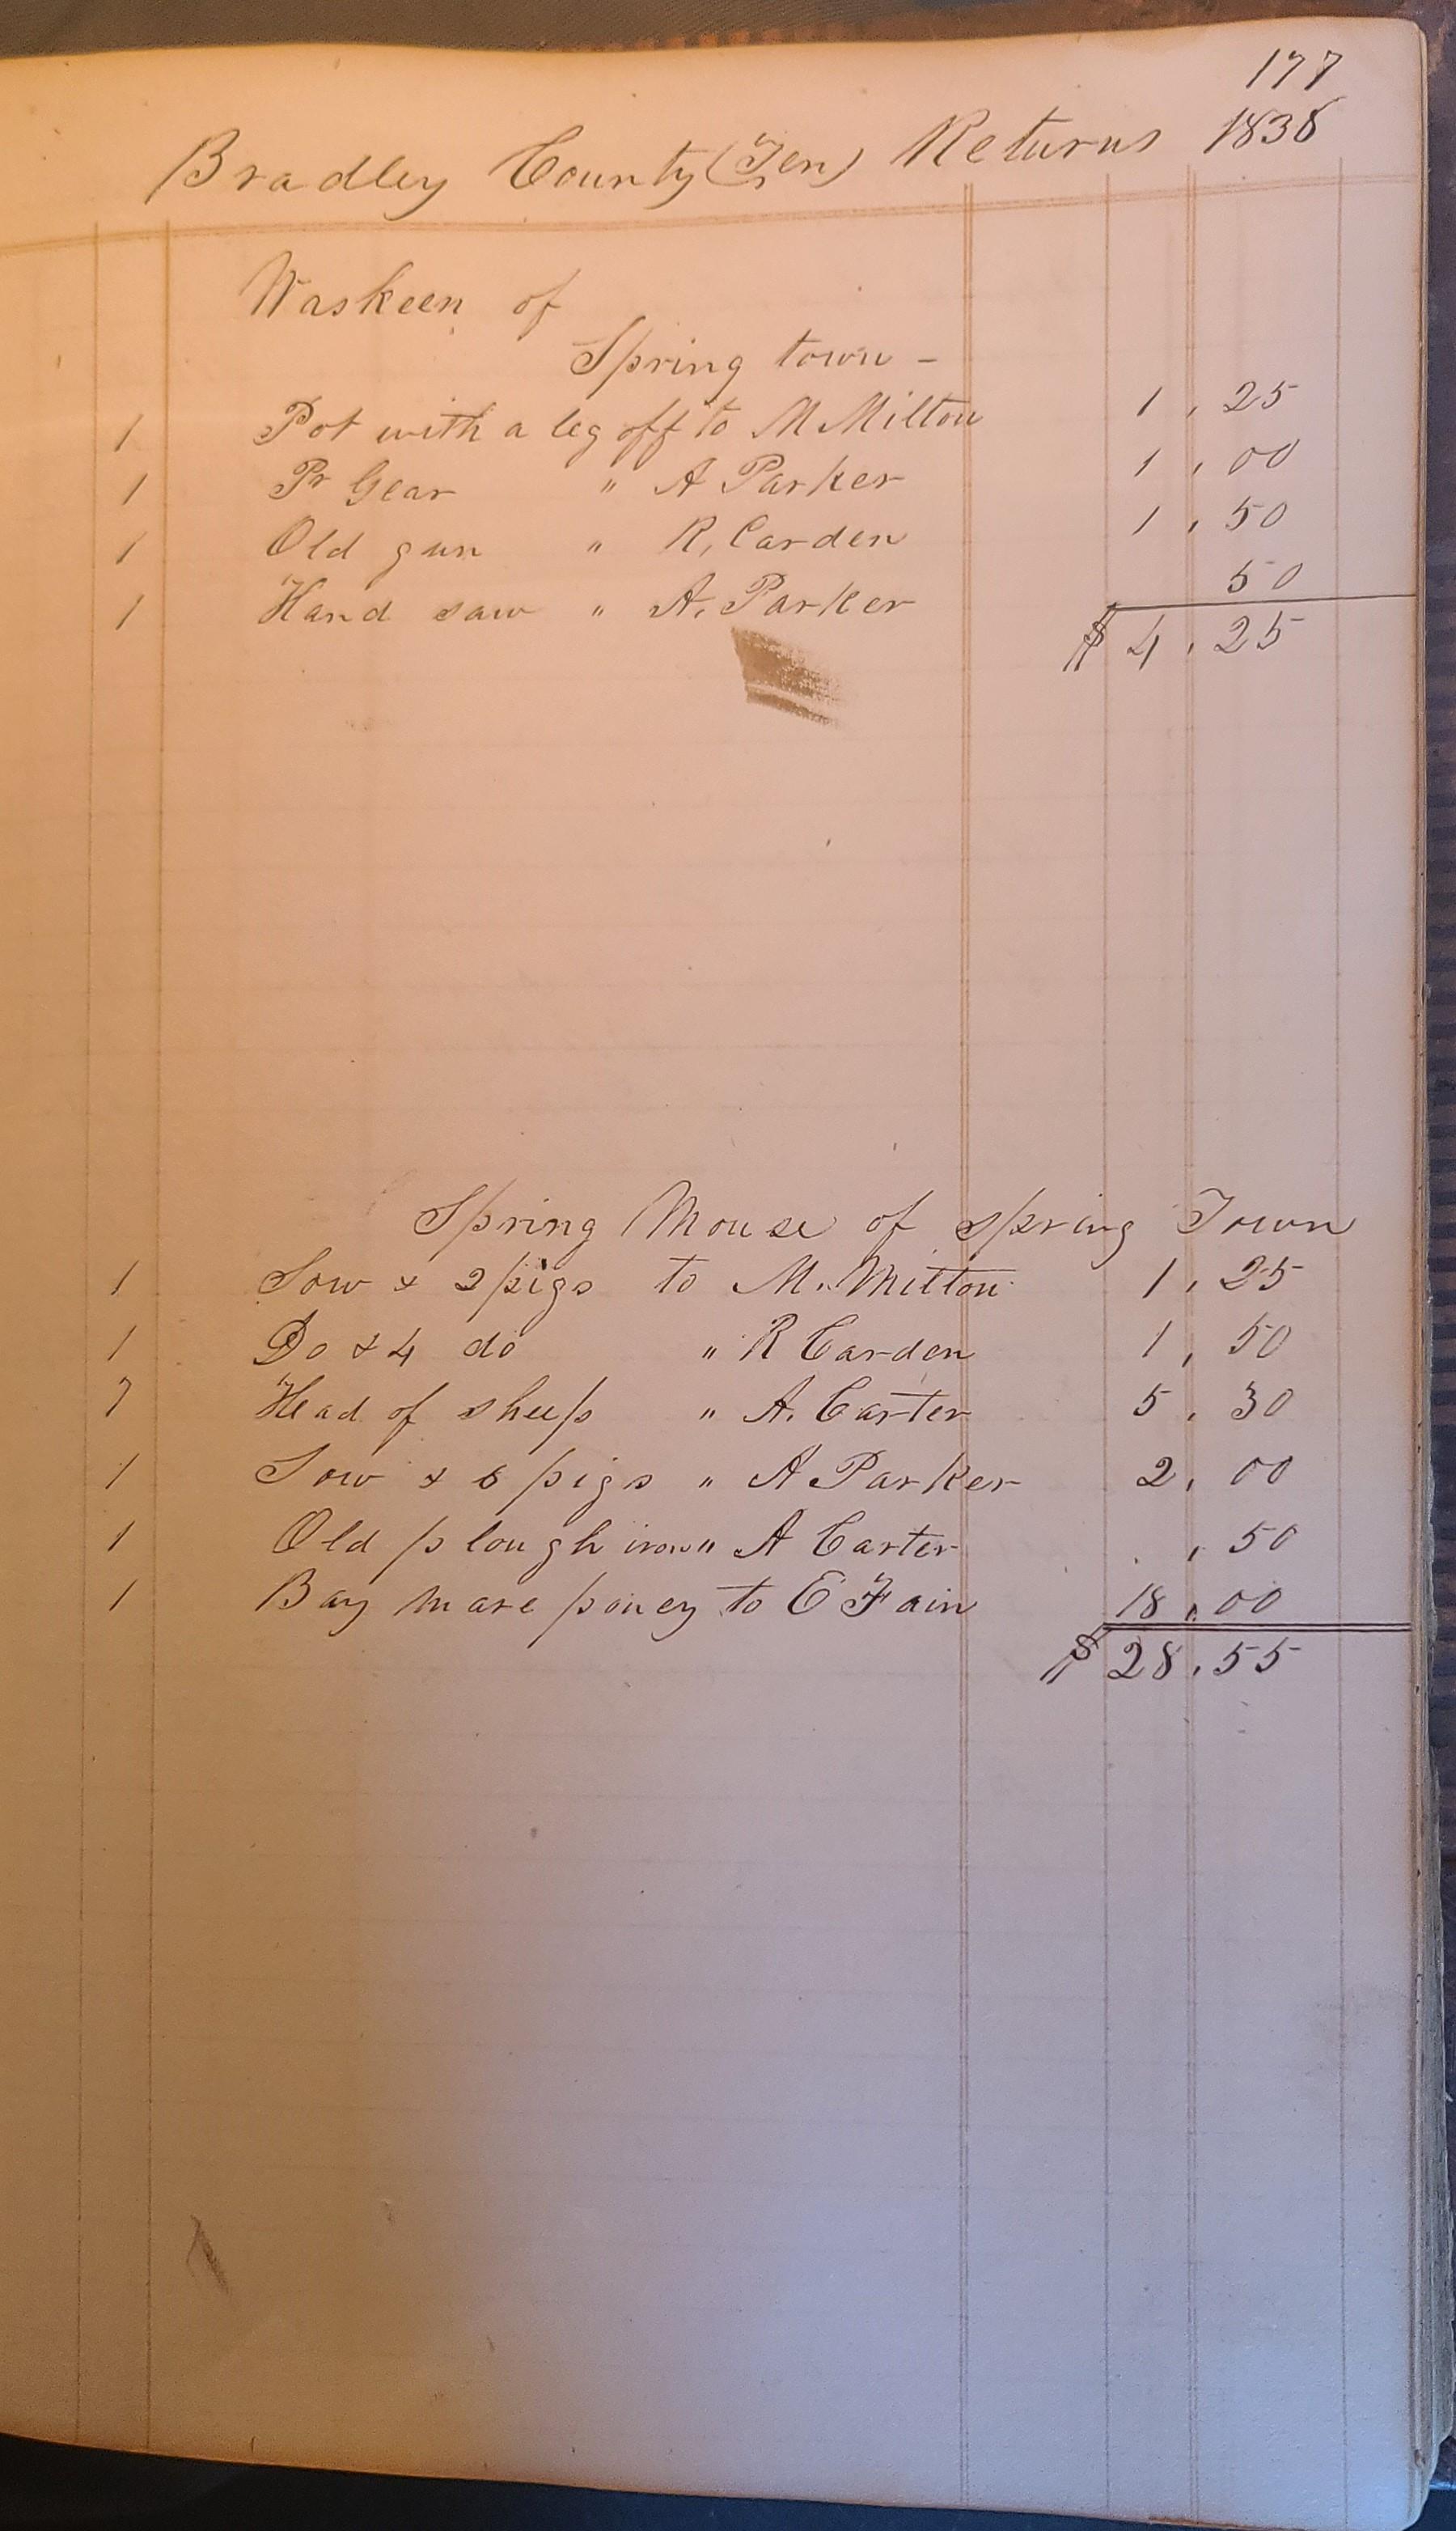 177
Bradley County (Ten) Returns 1838
Waskeen of
Spring town -
1 Pot with a leg off to M Milton 1.25
1 Pr Gear " A Parker 1.00
1 Old gun " R, Carden 1.50
1 Hand saw " A. Parker 50
$ 4.25
Spring Mouse of spring Town
1 Sow & 2 pigs to M. Milton 1.25
1 Do & 4 do " R Carden 1.50
7 Head of sheep " A. Carter 5.30
1 Sow & 6 pigs " A Parker 2.00
1 Old plough iron " A Carter .50
1 Bay mare poney to E Fain 18.00
$ 28.55